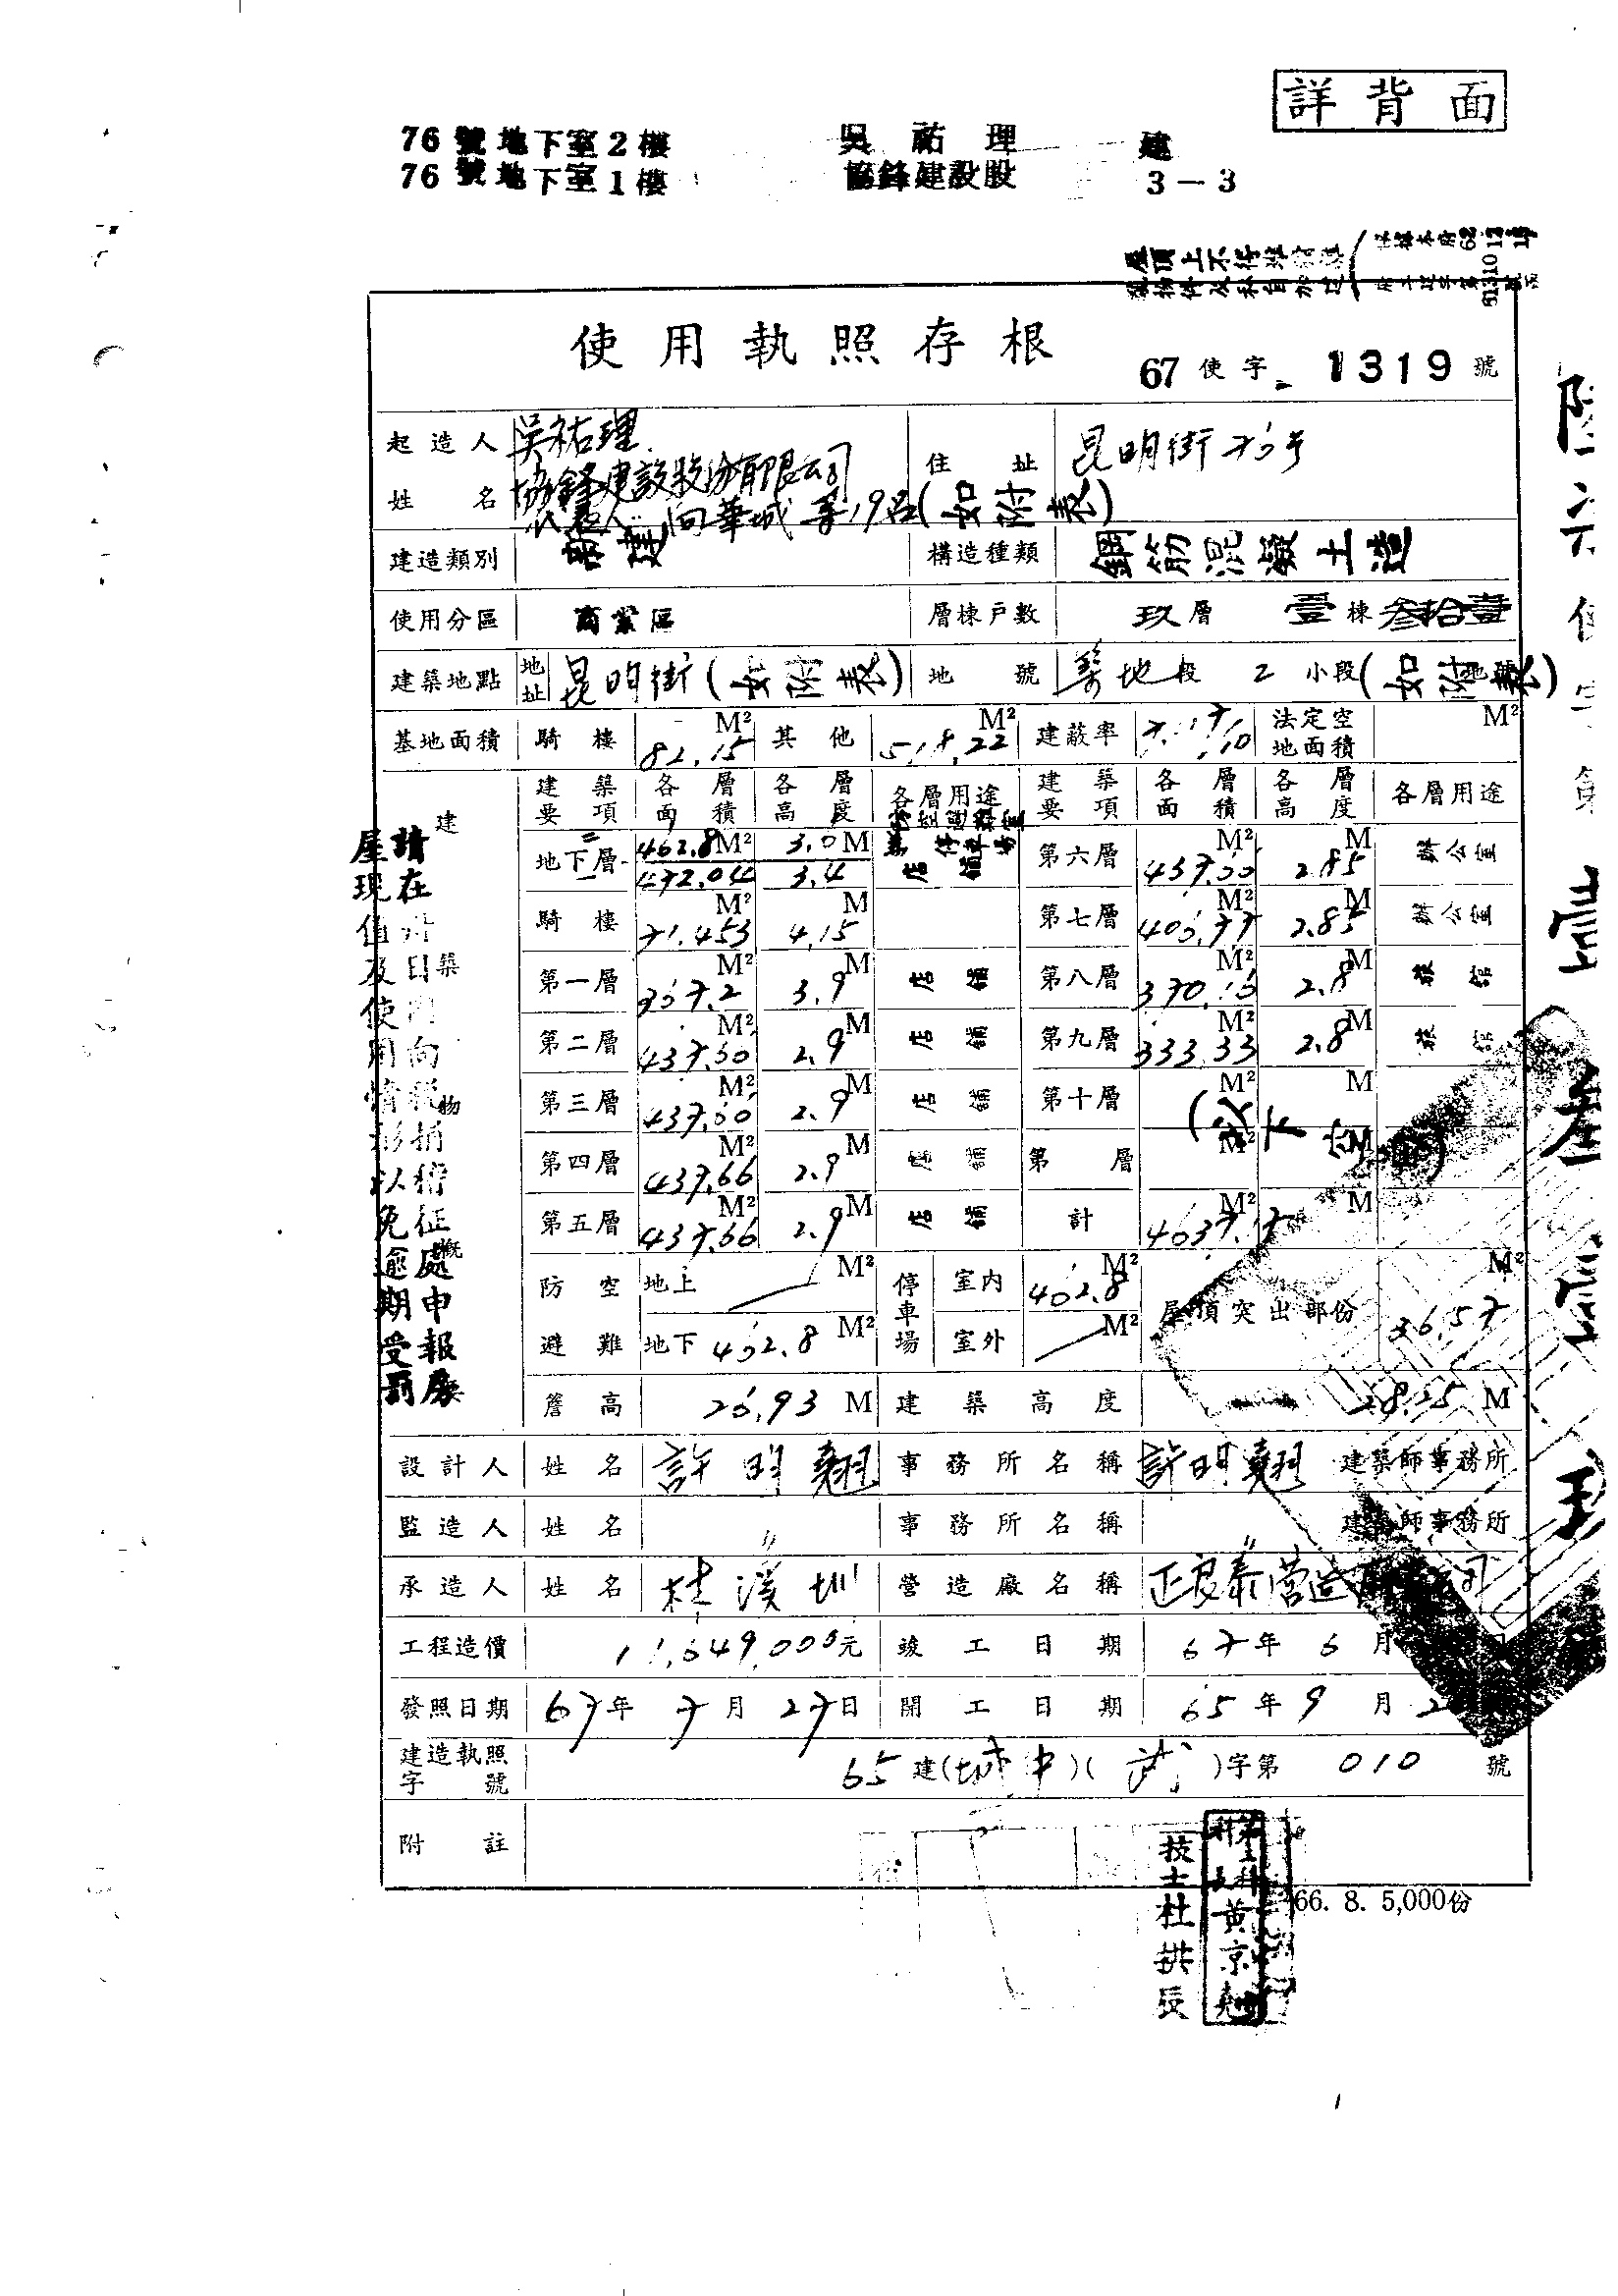 詳背面
76號地下室2樓 吳祐理 建
76號地下室1樓 協鋒建設股 3-3
屋頂上不得堆
使用執照存根
67使字 1319號
起造人姓名 吳祐理 協鋒建設股份有限公司 代表人 向華城 等19名(如附表) 住址 昆明街76号
建造類別 新建 構造種類 鋼筋混凝土造
使用分區 商業區 層棟戶數 玖層 壹棟 叁拾壹
建築地點 地址 昆明街(如附表) 地號 築地段 2 小段(如附表)
基地面積 騎樓 82.15 M² 其他 518.22 M² 建蔽率 法定空地面積 M²
建築要項 各層面積 各層高度 各層用途 建築要項 各層面積 各層高度 各層用途
地下層 二 462.8 M² 3.0 M 停車場 第六層 437.66 M² 2.85 M 辦公室
一 472.04 3.4 店舖
騎樓 71.453 M² 4.15 M 第七層 406.77 M² 2.85 M 辦公室
第一層 367.2 M² 3.9 M 店舖 第八層 370.16 M² 2.8 M 旅館
第二層 437.66 M² 2.9 M 店舖 第九層 333.33 M² 2.8 M 旅館
第三層 437.66 M² 2.9 M 店舖 第十層 M² M
(以下空
第四層 437.66 M² 2.9 M 店舖 第 層 M² M
第五層 437.66 M² 2.9 M 店舖 計 4637.17 M² M
防空避難 地上 M² 停車場 室內 402.8 M² 屋頂突出部份 36.57 M²
地下 402.8 M² 室外 M²
簷高 26.93 M 建築高度 28.25 M
設計人 姓名 許明翹 事務所名稱 許明翹 建築師事務所
監造人 姓名 〃 事務所名稱 〃 建築師事務所
承造人 姓名 林溪圳 營造廠名稱 正良泰營造
工程造價 11,649,000元 竣工日期 67年6月
發照日期 67年7月27日 開工日期 65年9月2
建造執照字號 65建(城中)( 武 )字第 010 號
附註
建築物概要
請在 向 稽征處申報房
屋現值及使用情形以免逾期受罰
技士杜拱辰
科長 黃京
66. 8. 5,000份
陸 使字第壹叁壹玖